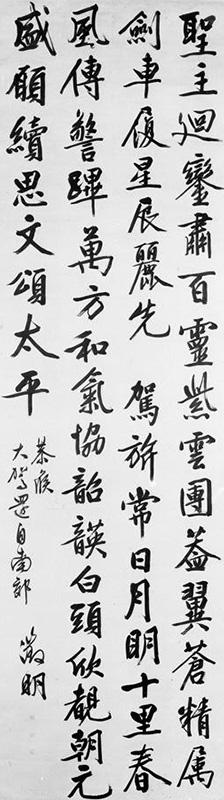 聖主迴鑾肅百靈紫雲團蓋翼蒼精屬
劍車履星辰麗先駕旂常日月明十里春
風傳警蹕萬方和氣協韶韺白頭欣覩朝元
盛願續思文頌太平
恭候
大駕還自南郊 徵明